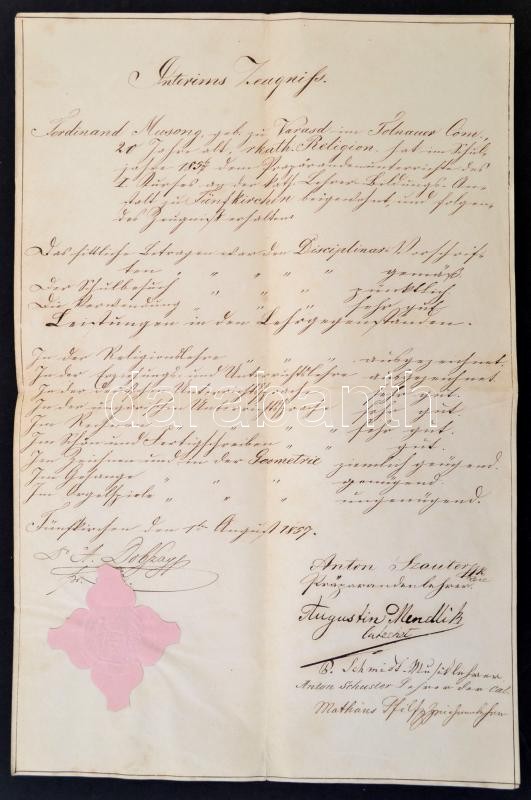 Interims Zeugniß.
Ferdinand Musong, geb. zu Varasd im Tolnauer Com.,
20 Jahre alt, rkath. Religion, hat im Schul-
jahre 185 6/7 dem Präparandenunterrichte des
I. Kurses an der kath. Lehrer-Bildungs-An-
stalt zu Fünfkirchen beigewohnt, und folgen-
des Zeugniß erhalten:
Das sittliche Betragen war den Disciplinar-Vorschrif-
ten " " " " gemäß
Der Schulbesuch " " " pünktlich
Die Verwendung " " " sehr gut
Leistungen in den Lehrgegenständen.
In der Religionslehre " " " ausgezeichnet.
In der Erziehungs- und Unterrichtslehre ausgezeichnet
In der Unterrichtssprache " sehr gut.
In der Unterrichtssprache " gut
Im Rechnen " " " sehr gut.
Im Schön und Fertigschreiben " " gut.
Im Zeichnen und in der Geometrie ziemlich genügend.
Im Gesange " " " genügend.
Im Orgelspiele " " " ungenügend.
Fünfkirchen den 1ten August 1857.
Anton Szauter
Präparandenlehrer
Augustin Mendlik
Catechet
P. Schmidt Musiklehrer
Anton Schuster Lehrer der
Mathäus Zeichenlehrer
darabanth